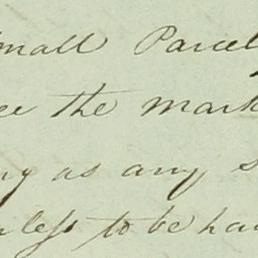 small Parcel
the mark
as any s
less to be ha